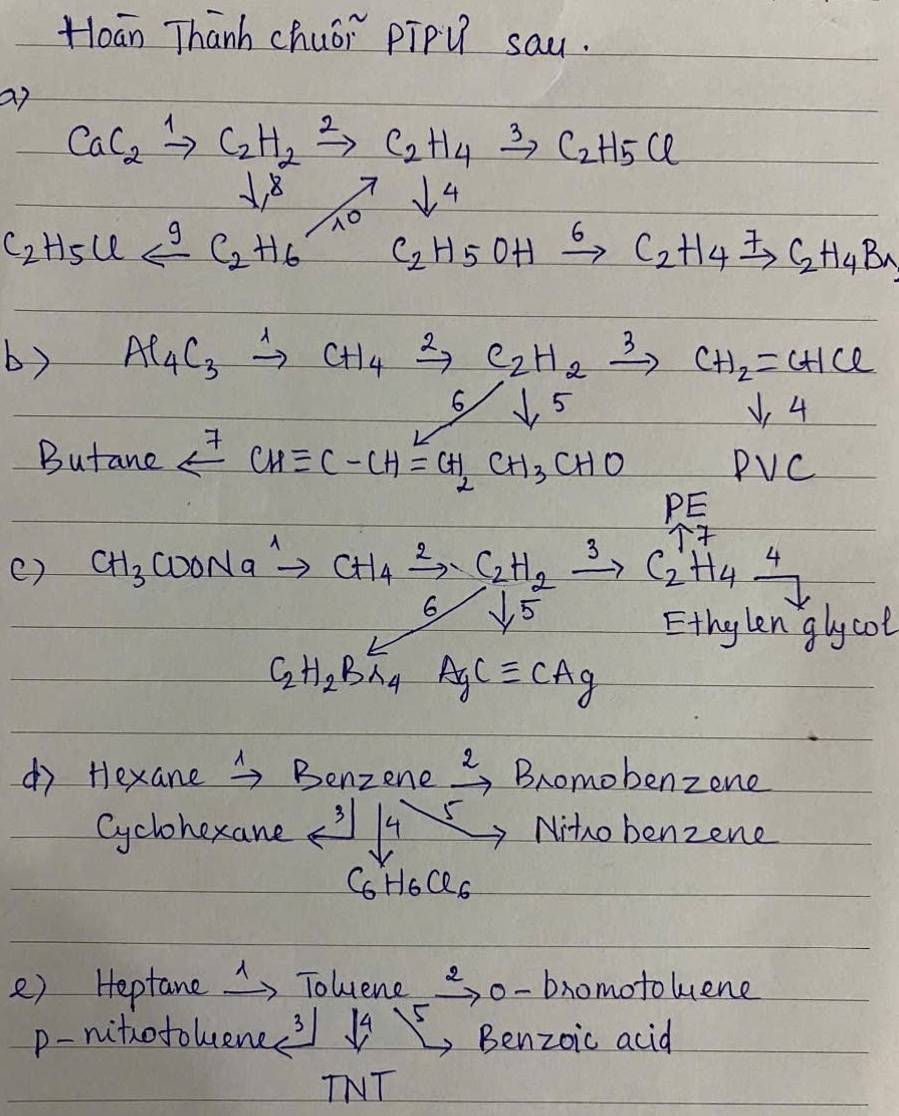 Hoàn Thành chuỗi PTPỨ sau.
a)
CaC2 1→ C2H2 2→ C2H4 3→ C2H5Cl
↓8 ↓4
C2H5Cl ←9 C2H6 ↗10 C2H5OH 6→ C2H4 7→ C2H4Br2
b) Al4C3 1→ CH4 2→ C2H2 3→ CH2=CHCl
6↙ ↓5 ↓4
Butane ←7 CH≡C-CH=CH2 CH3CHO PVC
PE
↑7
c) CH3COONa 1→ CH4 2→ C2H2 3→ C2H4 4→
6↙ ↓5 Ethylen glycol
C2H2Br4 AgC≡CAg
d) Hexane 1→ Benzene 2→ Bromobenzene
Cyclohexane ←3 ↓4 5→ Nitrobenzene
C6H6Cl6
e) Heptane 1→ Toluene 2→ o-bromotoluene
p-nitrotoluene ←3 ↓4 5→ Benzoic acid
TNT